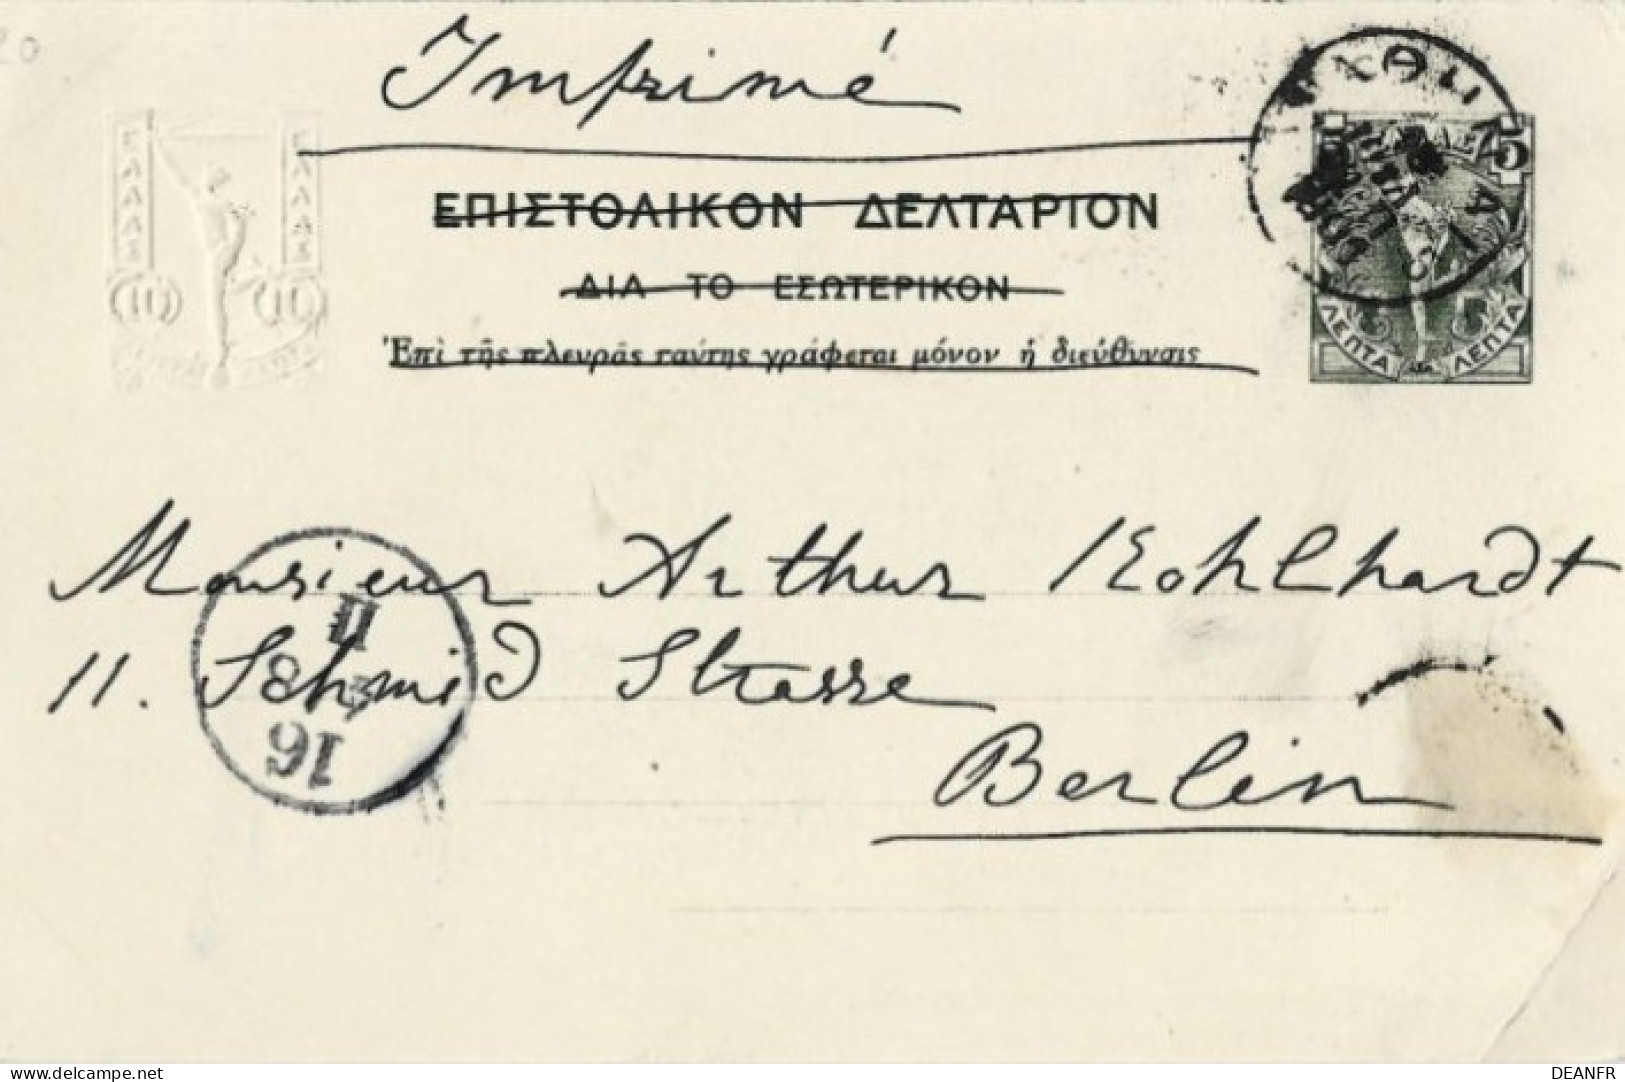 20
Imprimé
ΕΛΛΑΣ ΕΛΛΑΣ
10 10
ΕΠΙΣΤΟΛΙΚΟΝ ΔΕΛΤΑΡΙΟΝ
ΔΙΑ ΤΟ ΕΣΩΤΕΡΙΚΟΝ
Ἐπὶ τῆς πλευρᾶς ταύτης γράφεται μόνον ἡ διεύθυνσις
5
ΛΕΠΤΑ ΛΕΠΤΑ
Monsieur Arthur Kohlhardt
11. Schmid Strasse
Berlin
DELCAMPE.NET
DEANFR